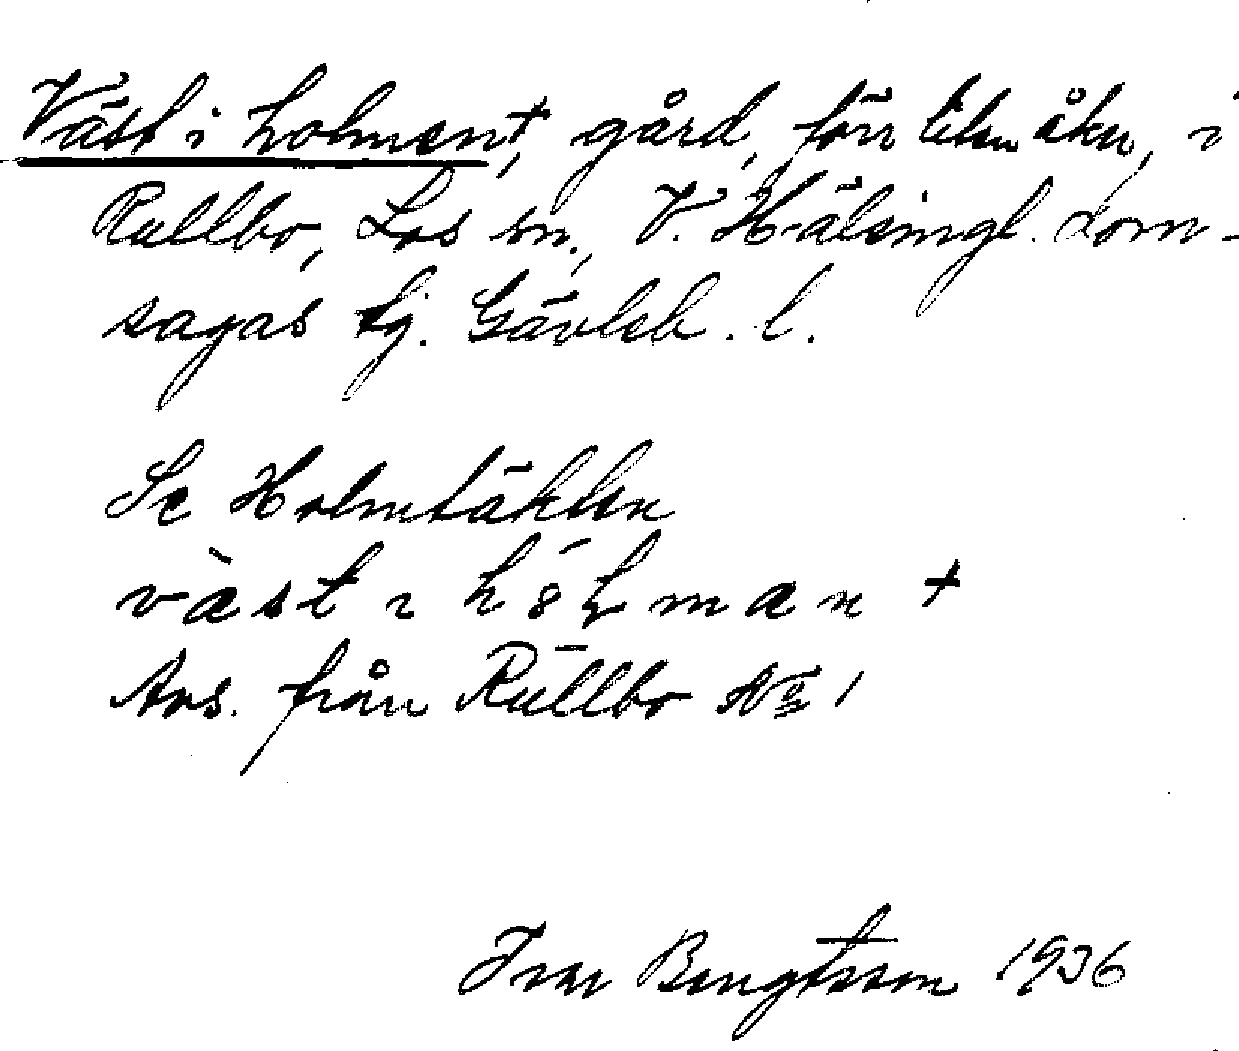 Väst i holmen†, gård, förr liten åker, i
Rullbo, Los sn, V. Hälsingl. dom-
sagas tg. Gävleb. l.
Se Holmtäkten
väst ı hòlman +
Avs. från Rullbo № 1
Ivar Bengtsson 1936